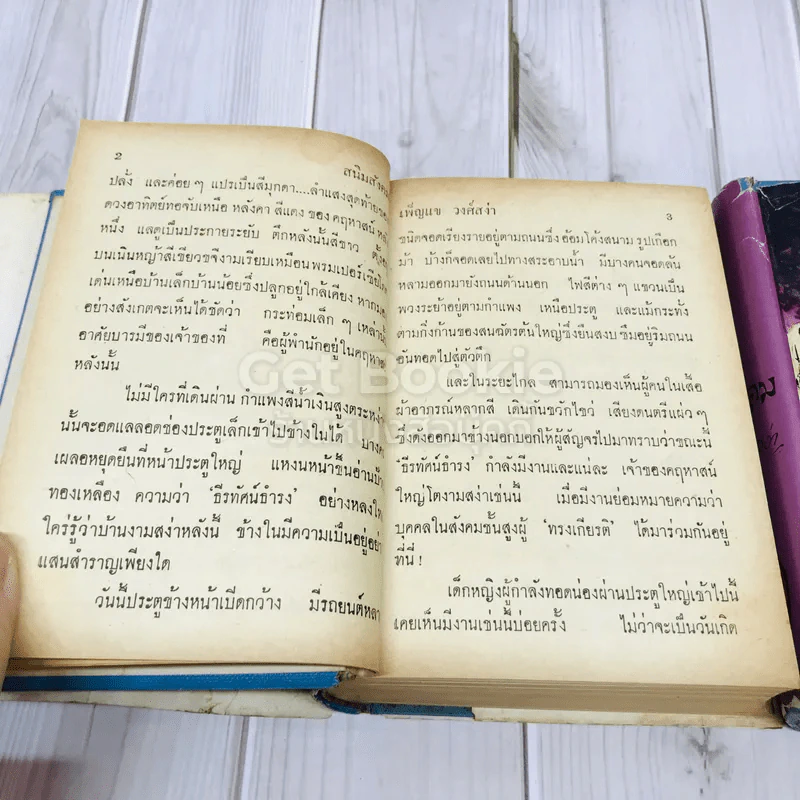 2
สนิมสังคม
ปลั้ง และค่อย ๆ แปรเป็นสีมุกดา....ลำแสงสุดท้าย
ดวงอาทิตย์ทอจับเหนือ หลังคา สีแดง ของ คฤหาสน์ หลัง
หนึ่ง แลดูเป็นประกายระยับ ตึกหลังนั้นสีขาว ตั้ง
บนเนินหญ้าสีเขียวขจีงามเรียบเหมือนพรมเปอร์เซีย
เด่นเหนือบ้านเล็กบ้านน้อยซึ่งปลูกอยู่ใกล้เคียง หาก
อย่างสังเกตจะเห็นได้ชัดว่า กระท่อมเล็ก ๆ เหล่านั้น
อาศัยบารมีของเจ้าของที่ คือผู้พำนักอยู่ในคฤหาสน์
หลังนั้น
ไม่มีใครที่เดินผ่าน กำแพงสีน้ำเงินสูงตระหง่าน
นั้นจะอดแลลอดช่องประตูเล็กเข้าไปข้างในได้ บางคน
เผลอหยุดยืนที่หน้าประตูใหญ่ แหงนหน้าขึ้นอ่านป้าย
ทองเหลือง ความว่า ‘ธีรทัศน์ธำรง’ อย่างหลงใหล
ใคร่รู้ว่าบ้านงามสง่าหลังนี้ ข้างในมีความเป็นอยู่อย่าง
แสนสำราญเพียงใด
วันนี้ประตูข้างหน้าเปิดกว้าง มีรถยนต์หลาย
เพ็ญแข วงศ์สง่า
3
ชนิดจอดเรียงรายอยู่ตามถนนซึ่ง อ้อมโค้งสนาม รูปเกือก
ม้า บ้างก็จอดเลยไปทางสระอาบน้ำ มีบางคนจอดล้น
หลามออกมายังถนนด้านนอก ไฟสีต่าง ๆ แขวนเป็น
พวงระย้าอยู่ตามกำแพง เหนือประตู และแม้กระทั่ง
ตามกิ่งก้านของสนฉัตรต้นใหญ่ซึ่งยืนสงบ ซึมอยู่ริมถนน
อันทอดไปสู่ตัวตึก
และในระยะไกล สามารถมองเห็นผู้คนในเสื้อ
ผ้าอาภรณ์หลากสี เดินกันขวักไขว่ เสียงดนตรีแผ่ว ๆ
ซึ่งดังออกมาข้างนอกบอกให้ผู้สัญจรไปมาทราบว่าขณะนี้
‘ธีรทัศน์ธำรง’ กำลังมีงานและแน่ละ เจ้าของคฤหาสน์
ใหญ่โตงามสง่าเช่นนี้ เมื่อมีงานย่อมหมายความว่า
บุคคลในสังคมชั้นสูงผู้ ‘ทรงเกียรติ’ ได้มาร่วมกันอยู่
ที่นี่ !
เด็กหญิงผู้กำลังทอดน่องผ่านประตูใหญ่เข้าไปนี้
เคยเห็นมีงานเช่นนี้บ่อยครั้ง ไม่ว่าจะเป็นวันเกิด
Get Bookie